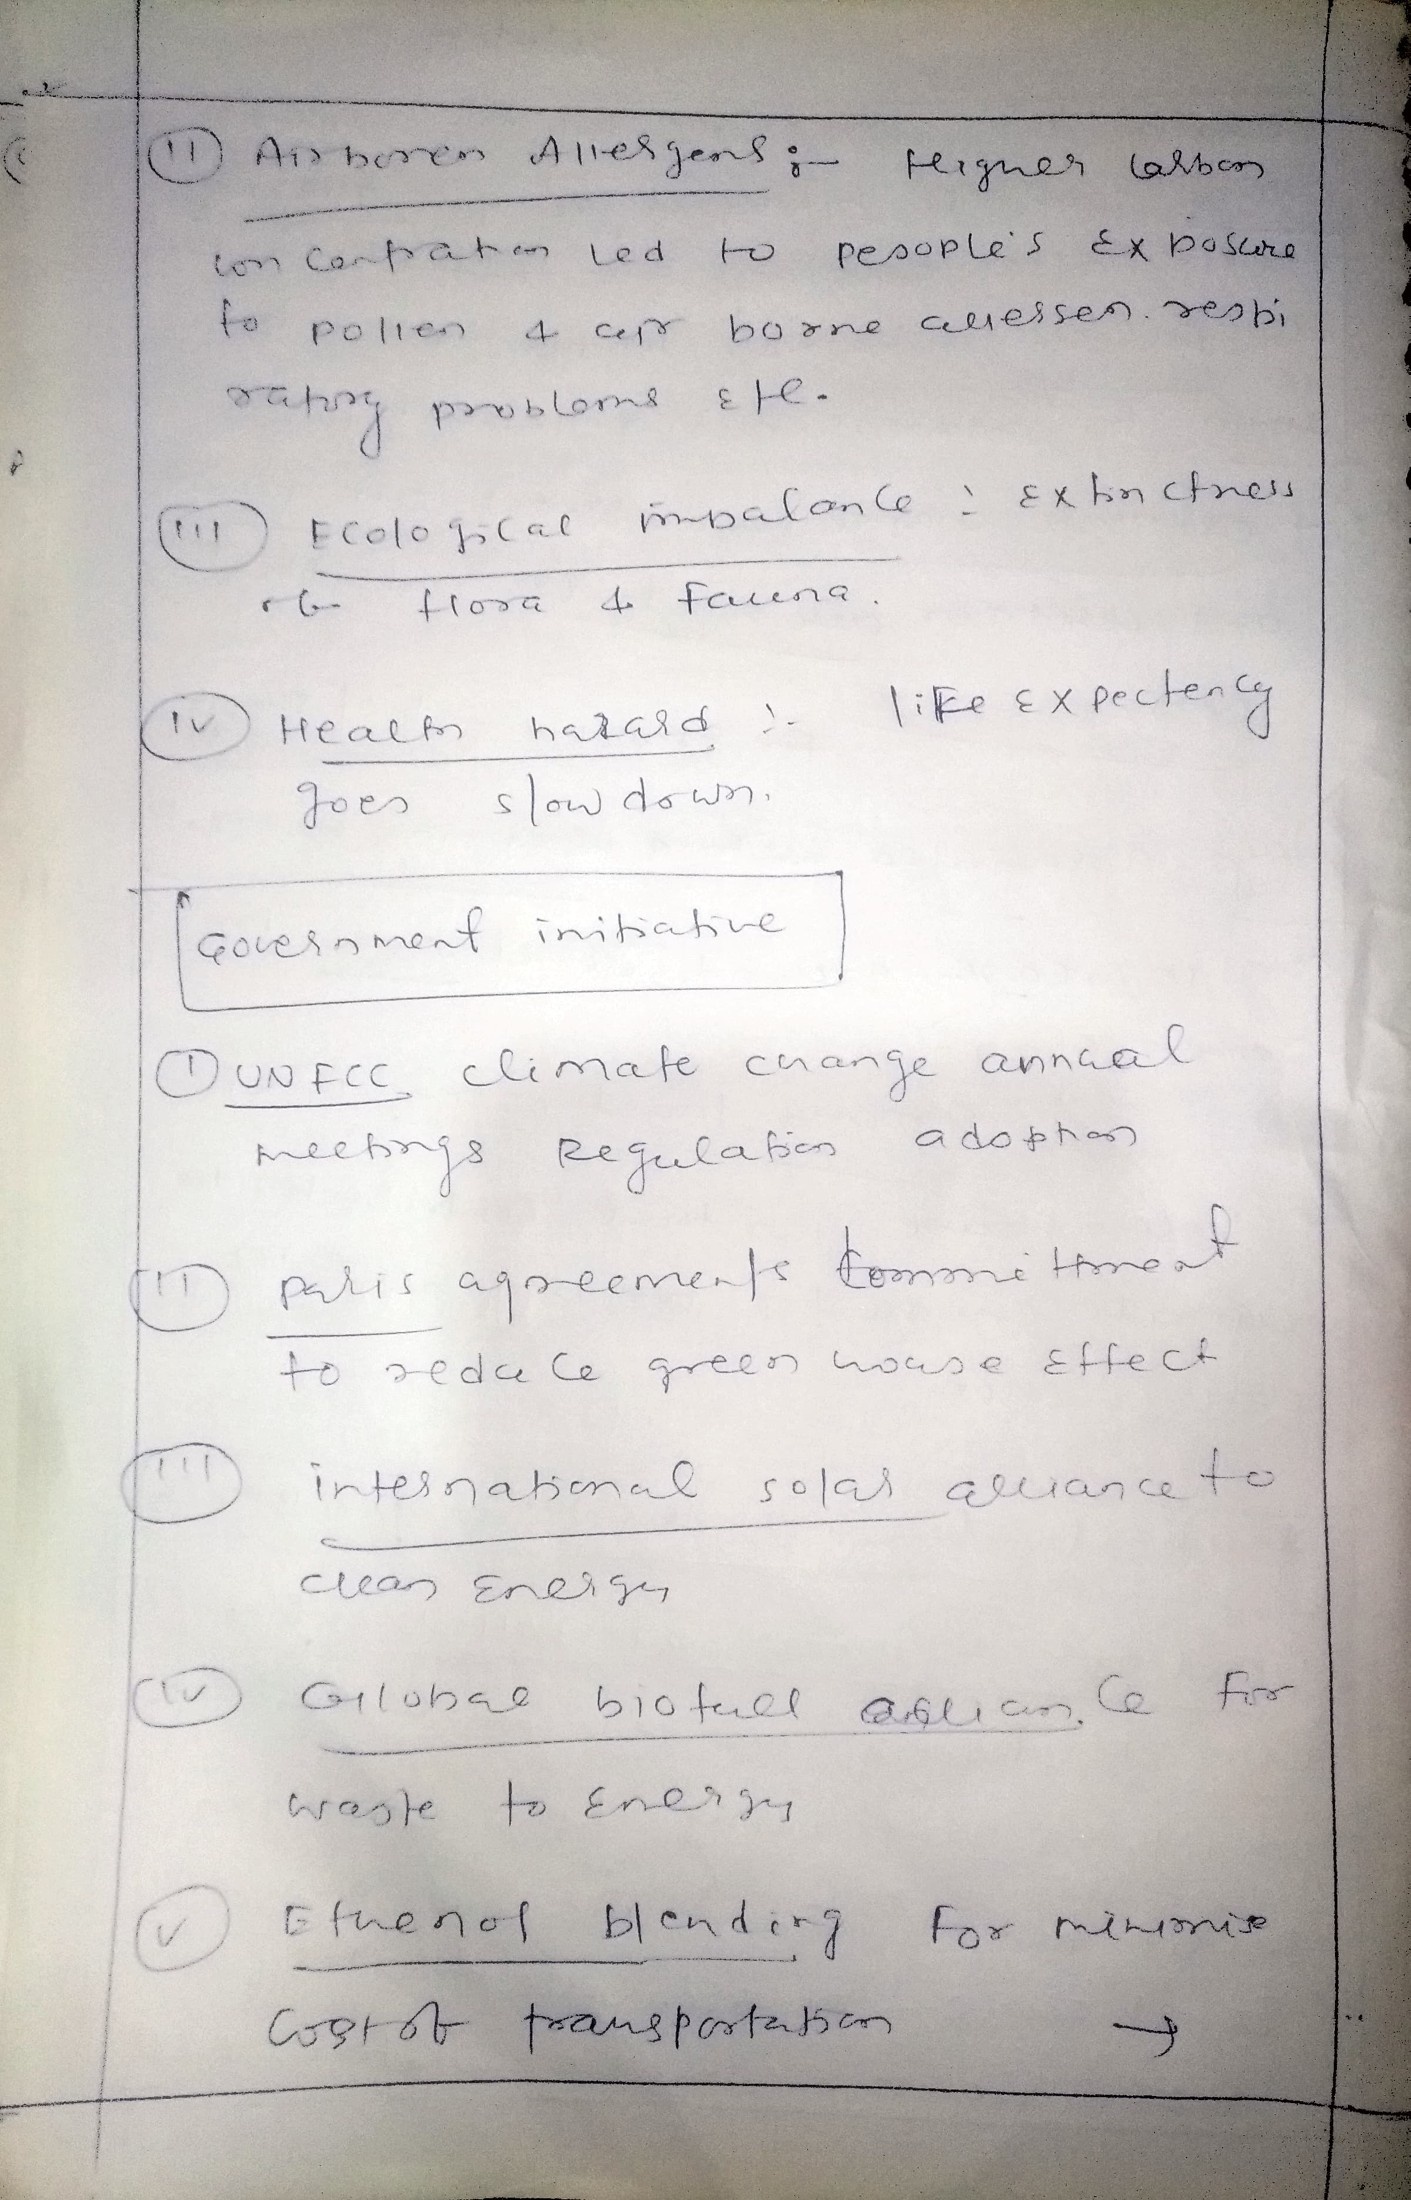 (II) Airboren Allergens :- Higher Carbon
concentration led to pesople's Exposure
to pollen & air borne respi
ratory problems Etc.
(III) Ecological imbalance : Extinctness
of flora & Fauna.
(IV) Health hazard :- life Expectency
goes slow down.
Government initiative
(I) UNFCC climate change annual
meetings Regulation adoption
(II) Paris agreements Committment
to reduce green house Effect
(III) international solar alliance to
clean Energy
(IV) Global biofuel alliance For
waste to Energy
(V) Ethenol blending For minimise
Cost of transportation →